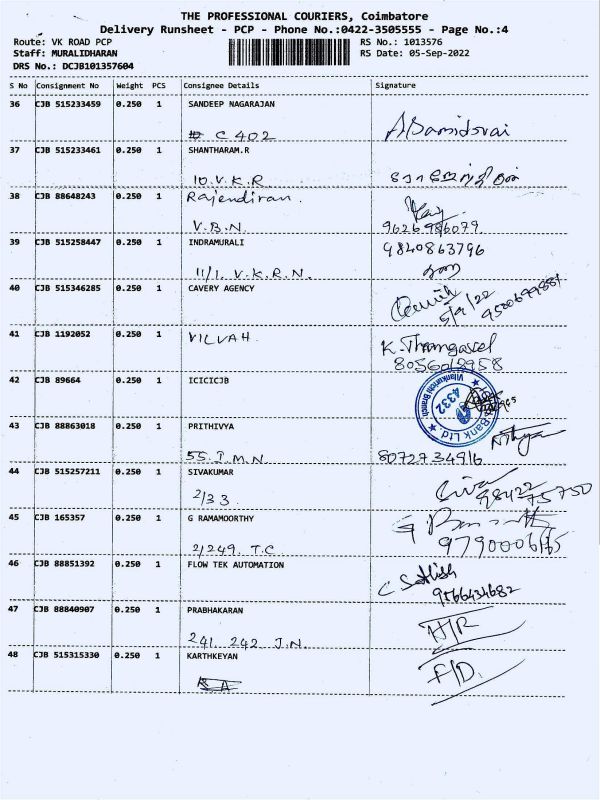 THE PROFESSIONAL COURIERS, Coimbatore
Delivery Runsheet - PCP - Phone No.:0422-3505555 - Page No.:4
Route: VK ROAD PCP RS No.: 1013576
Staff: MURALIDHARAN RS Date: 05-Sep-2022
DRS No.: DCJB101357604
S No Consignment No Weight PCS Consignee Details Signature
36 CJB 515233459 0.250 1 SANDEEP NAGARAJAN
# C 402
37 CJB 515233461 0.250 1 SHANTHARAM.R
10. V. K. R
38 CJB 88648243 0.250 1 Rajendiran.
V. B. N. 9626986079
39 CJB 515258447 0.250 1 INDRAMURALI 9840863796
11/1. V. K. R. N.
40 CJB 515346285 0.250 1 CAVERY AGENCY
5/9/22
41 CJB 1192052 0.250 1 VILVAH K. Thangavel
42 CJB 89664 0.250 1 ICICICJB
Bank Ltd. Vilankurichi Branch
43 CJB 88863018 0.250 1 PRITHIVYA Nithya
55. I. M. N 8072734916
44 CJB 515257211 0.250 1 SIVAKUMAR Siva
2/33 98422 75750
45 CJB 165357 0.250 1 G RAMAMOORTHY
2/249. T.C
46 CJB 88851392 0.250 1 FLOW TEK AUTOMATION C Sathish
9566434682
47 CJB 88840907 0.250 1 PRABHAKARAN H/R
241. 242 J.N.
48 CJB 515315330 0.250 1 KARTHKEYAN F/D.